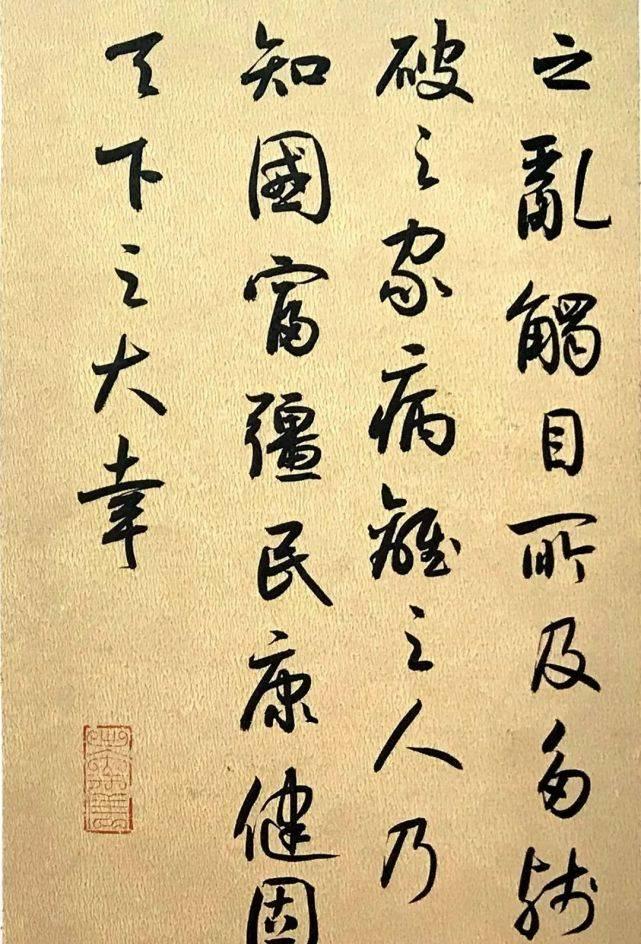 之亂觸目所及多殘
破之家病離之人乃
知國富彊民康健固
天下之大幸